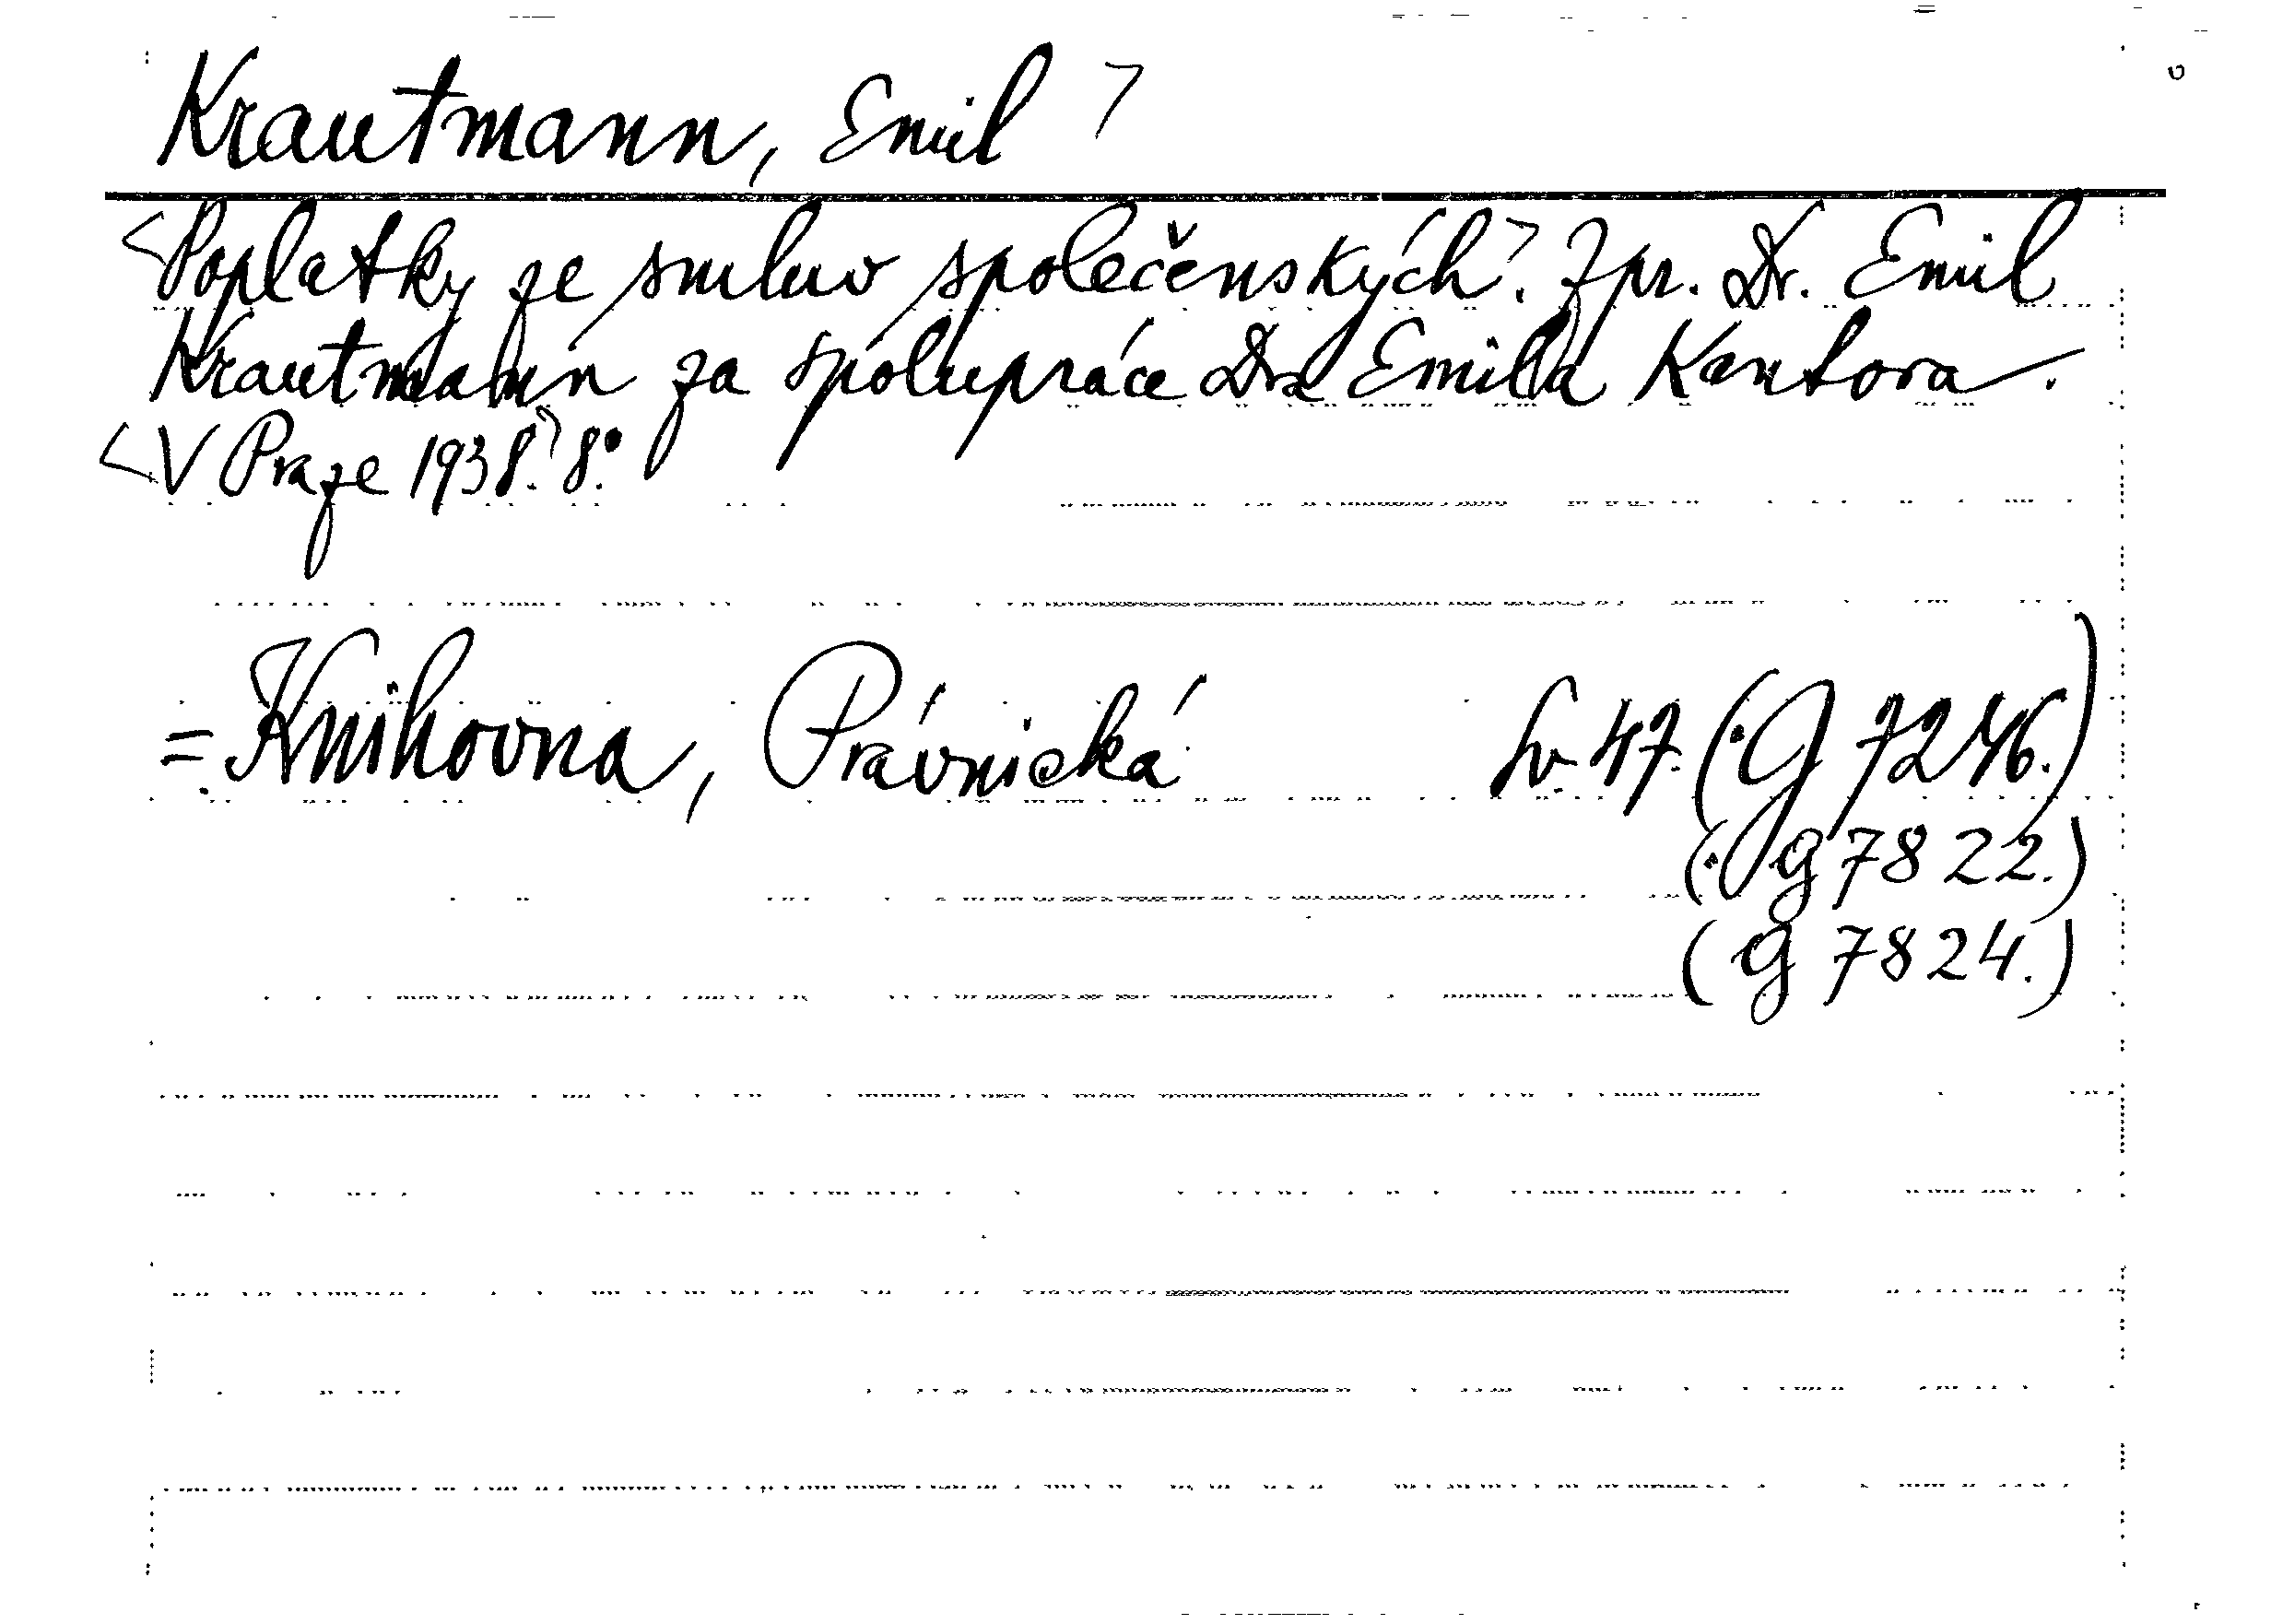 Krautmann, Emil ㄱ
<Poplatky ze smluv společenských.ㄱ Zpr. Dr. Emil
Krautmann za spolupráce Dra Emila Kantora.
<V Praze 1938.ㄱ 8.°
= Knihovna, Právnická Sv. 47. (G 7246.)
(G 7822.)
(G 7824.)